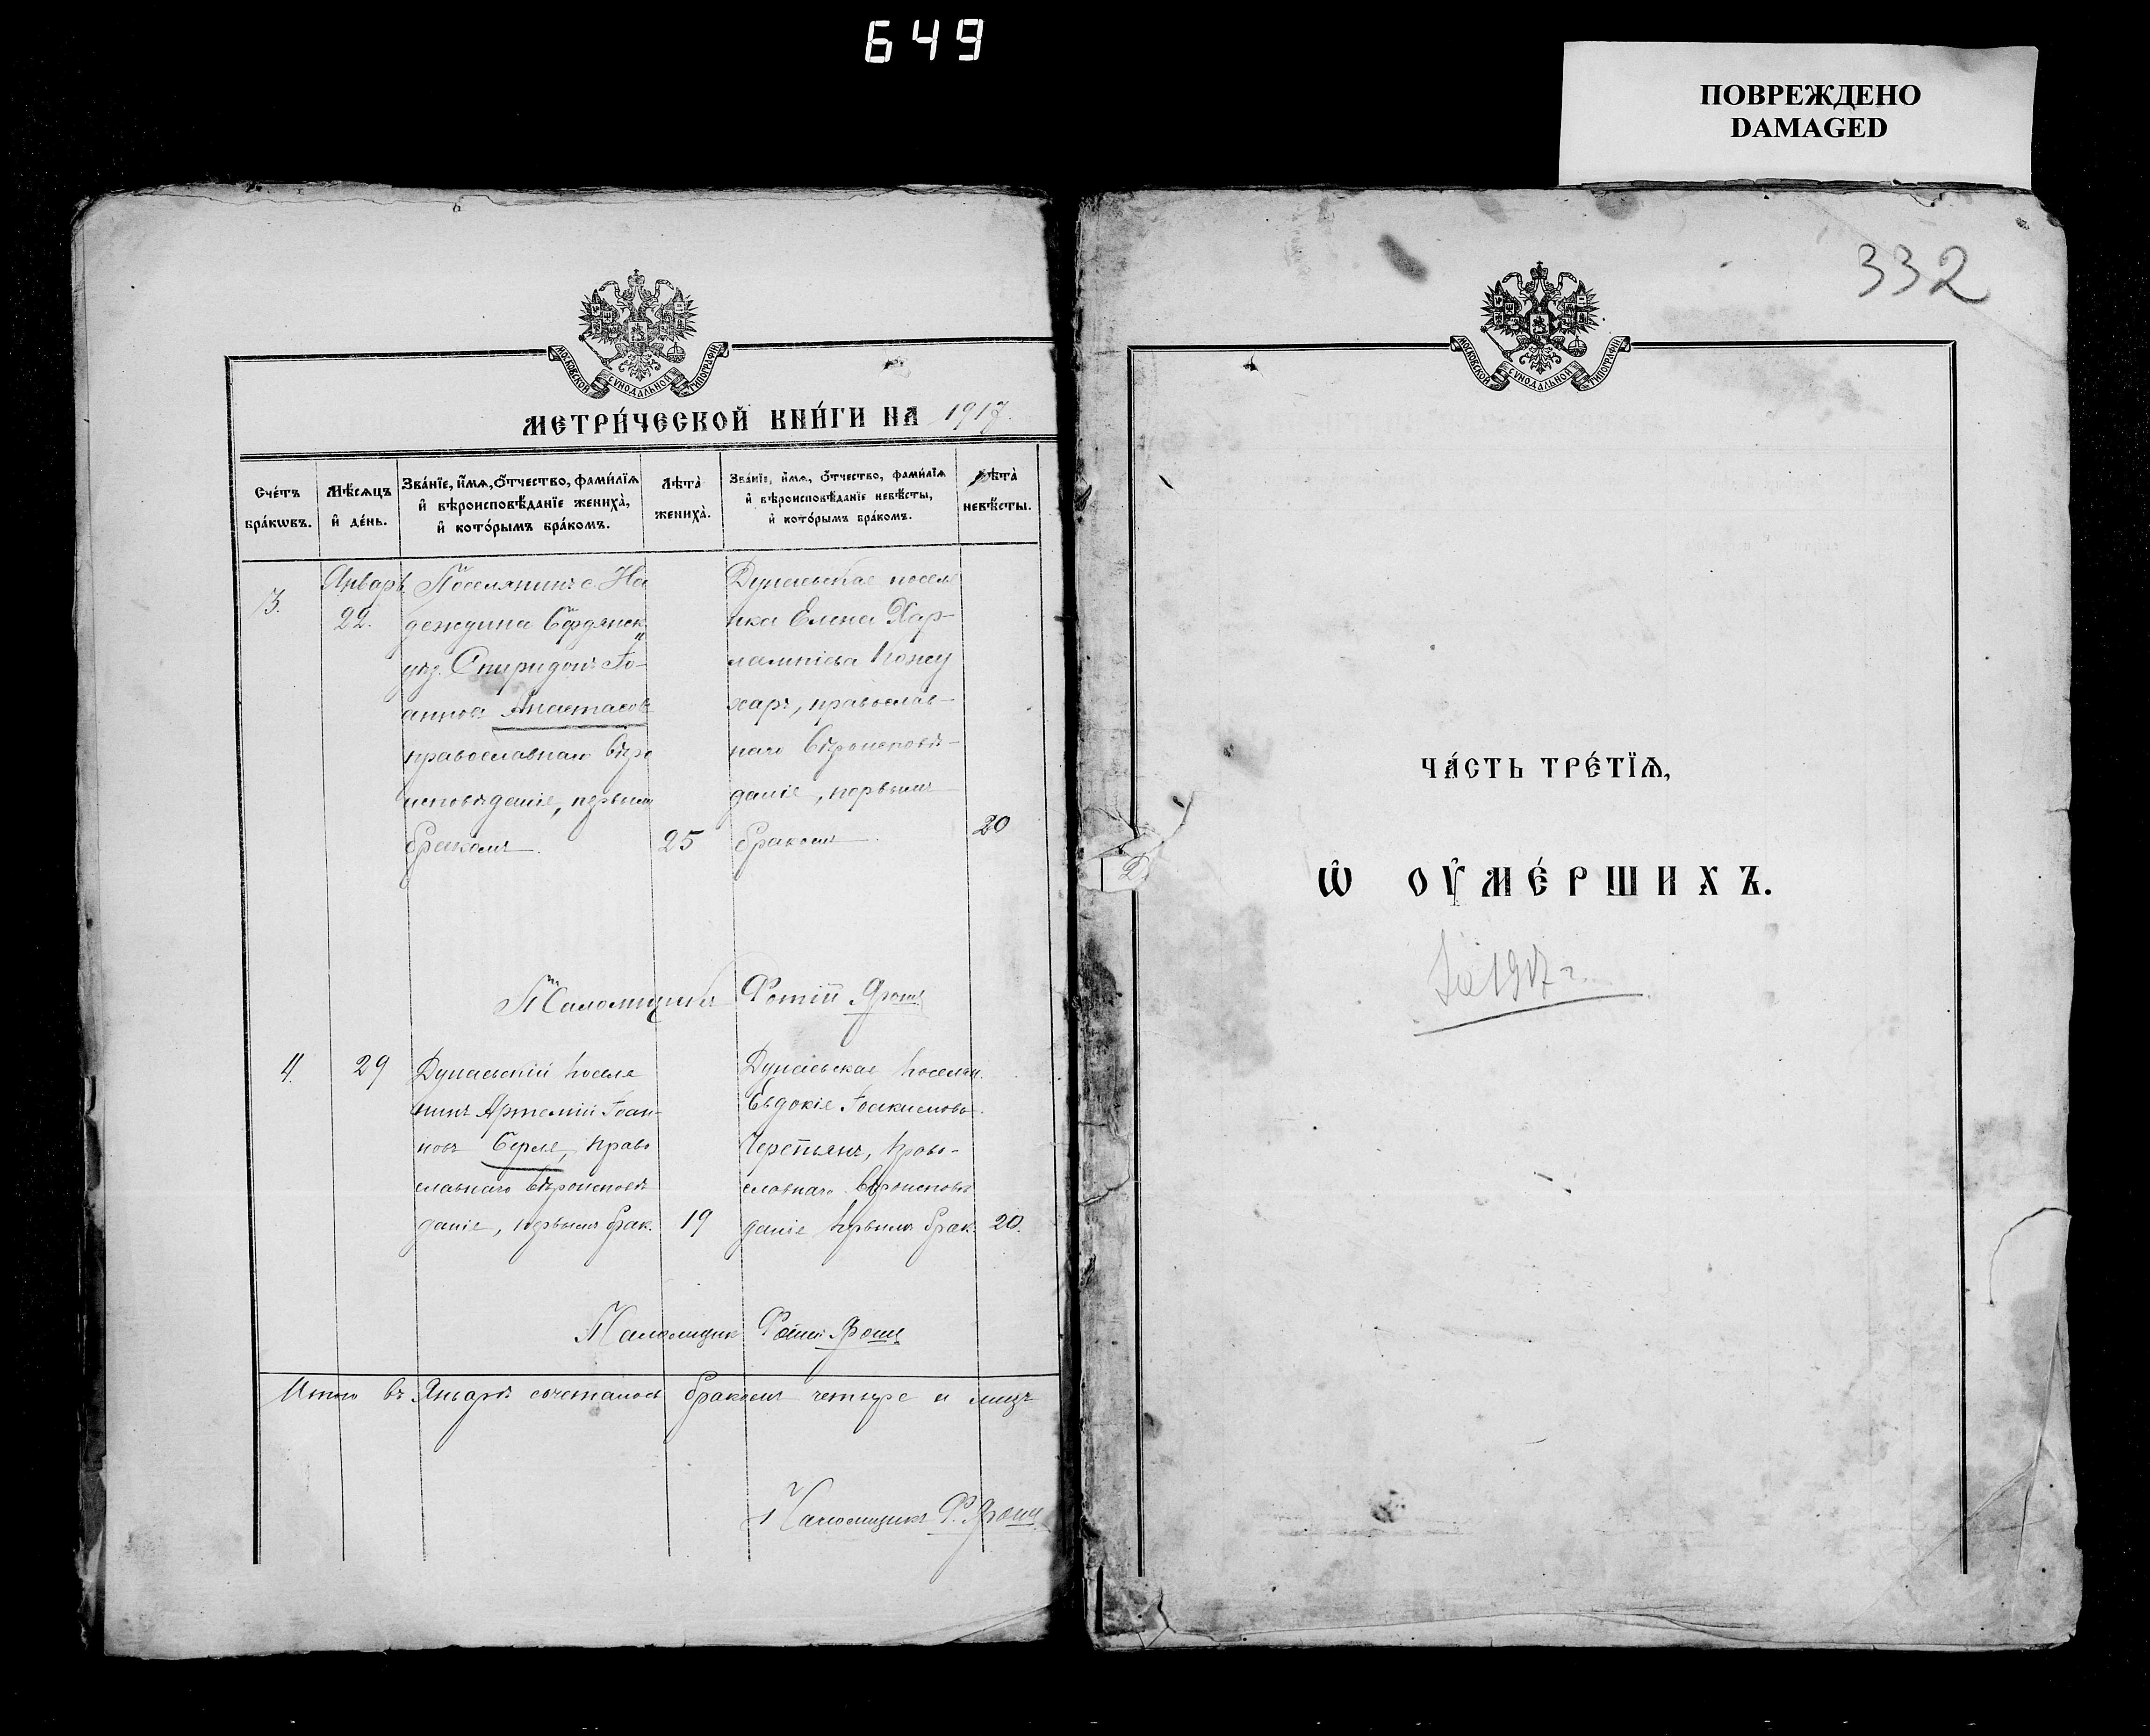 649
ПОВРЕЖДЕНО
DAMAGED
332
МОСКОВСКОЙ СѴНОДАЛЬНОЙ ТИПОГРАФІИ
МЕТРИ́ЧЕСКОЙ КНИ́ГИ НА 1917.
Сче́тъ бра́кѡвъ.
Мѣ́сѧцъ и҆ де́нь.
Зва́нїе, и҆́мѧ, ѻ҆́тчество, фами́лїѧ и҆ вѣроисповѣ́данїе жениха̀, и҆ кото́рымъ бра́комъ.
Лѣта̀ жениха̀.
Зва́нїе, и҆́мѧ, ѻ҆́тчество, фами́лїѧ и҆ вѣроисповѣ́данїе невѣ́сты, и҆ кото́рымъ бра́комъ.
Лѣта̀ невѣ́сты.
3.
Январь
22.
Поселянинъ с. На
деждина Бердянск
уѣз. Спиридонъ Іо-
анновъ Анастасов
православнаго вѣро
исповѣданія, первымъ
бракомъ.
25
Дунаевская поселя
нка Елена Хар-
лампіева Кожу
харъ, православ-
наго вѣроисповѣ-
данія, первымъ
бракомъ.
20
Псаломщикъ Фотій Ярошъ
4.
29
Дунаевскій поселя
нинъ Артемій Іоан-
новъ Берля, право
славнаго вѣроисповѣ
данія, первымъ брак.
19
Дунаевская поселян.
Евдокія Іоакимова
право-
славнаго вѣроисповѣ
данія первымъ брак.
20.
Псаломщик Фотій Ярошъ
Итого въ Январѣ сочеталось бракомъ четыре и лицъ
Псаломщикъ Ф. Ярошъ
МОСКОВСКОЙ СѴНОДАЛЬНОЙ ТИПОГРАФІИ
ЧА́СТЬ ТРЕ́ТЇѦ,
Ѡ҆ ОУ҆МЕ́РШИХЪ.
За 1917 г.